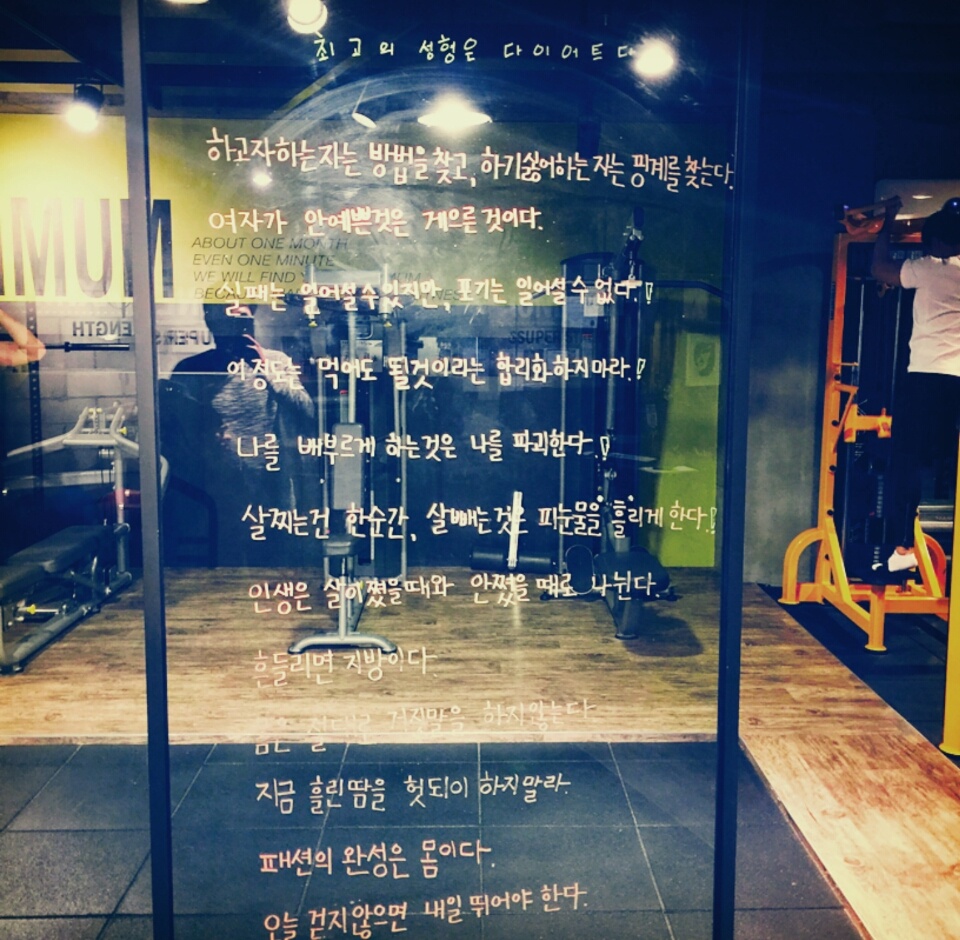 최고의 성형은 다이어트다
하고자하는자는 방법을 찾고, 하기싫어하는 자는 핑계를 찾는다.
여자가 안예쁜것은 게으른 것이다.
ABOUT ONE MONTH
EVEN ONE MINUTE
WE WILL FIND
실패는 일어설 수 있지만, 포기는 일어설 수 없다.!
이정도는 먹어도 될것이라는 합리화하지마라.!
나를 배부르게 하는것은 나를 파괴한다.!
살찌는건 한순간, 살빼는것은 피눈물을 흘리게 한다.!
인생은 살이쪘을때와 안쪘을때로 나뉜다.
흔들리면 지방이다.
몸은 절대로 거짓말을 하지않는다
지금 흘린땀을 헛되이 하지말라.
패션의 완성은 몸이다.
오늘 걷지않으면 내일 뛰어야 한다.